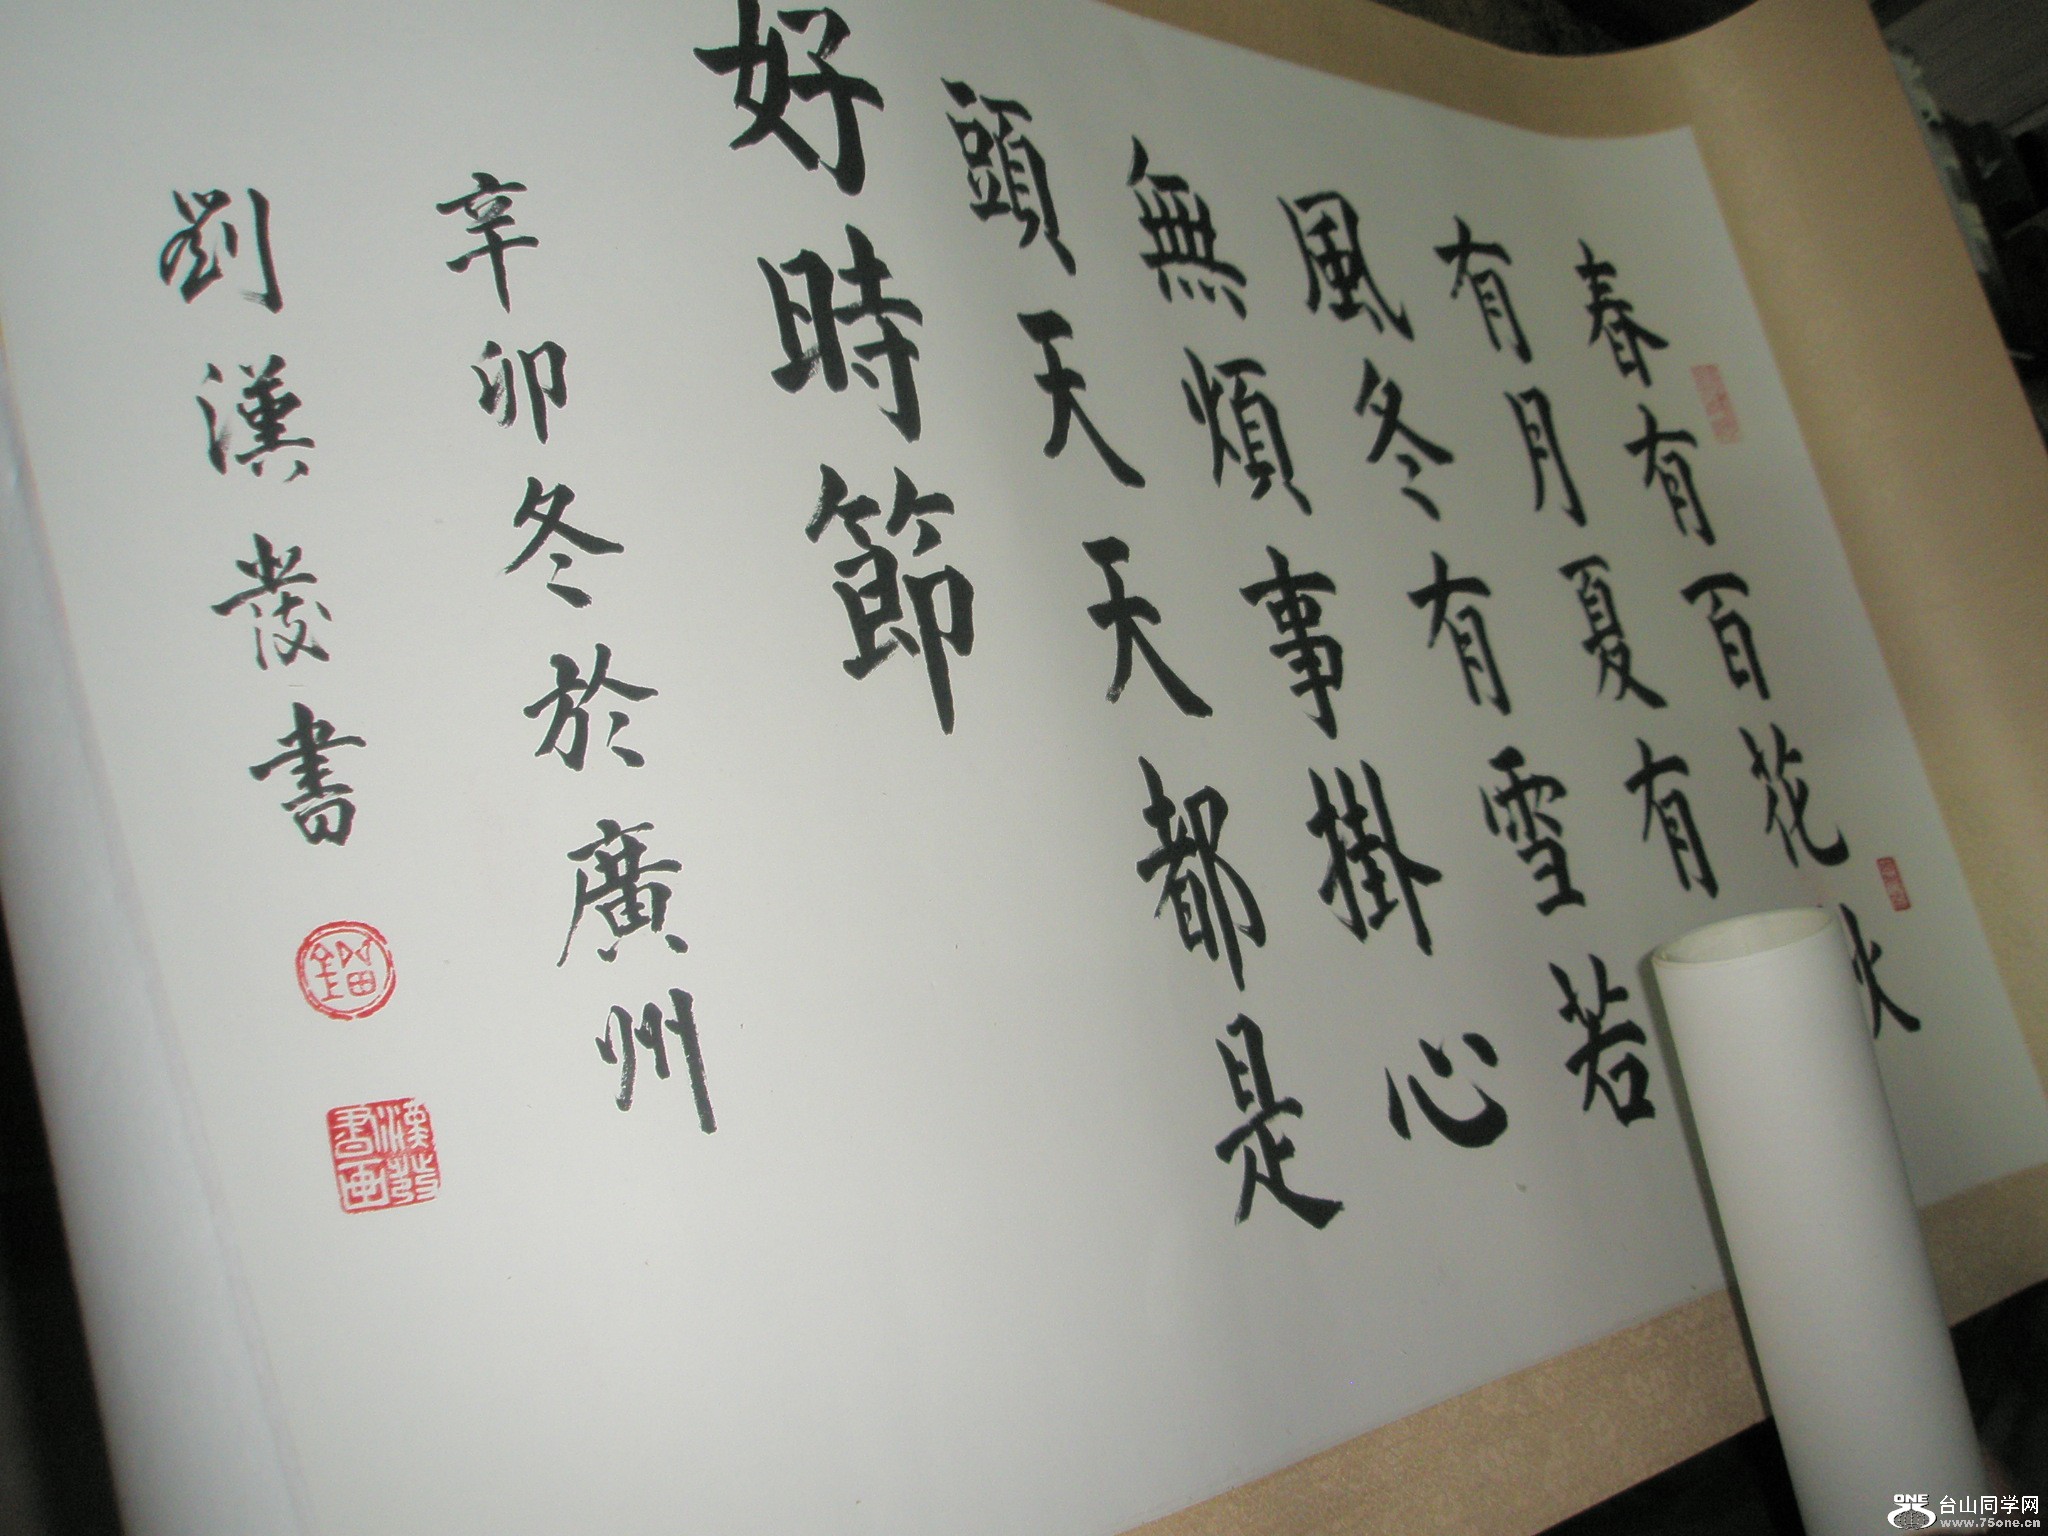 春有百花秋
有月夏有
風冬有雪若
無煩事掛心
頭天天都是
好時節
辛卯冬於廣州
劉漢發書
漢發書画
ONE
台山同学网
www.75one.cn